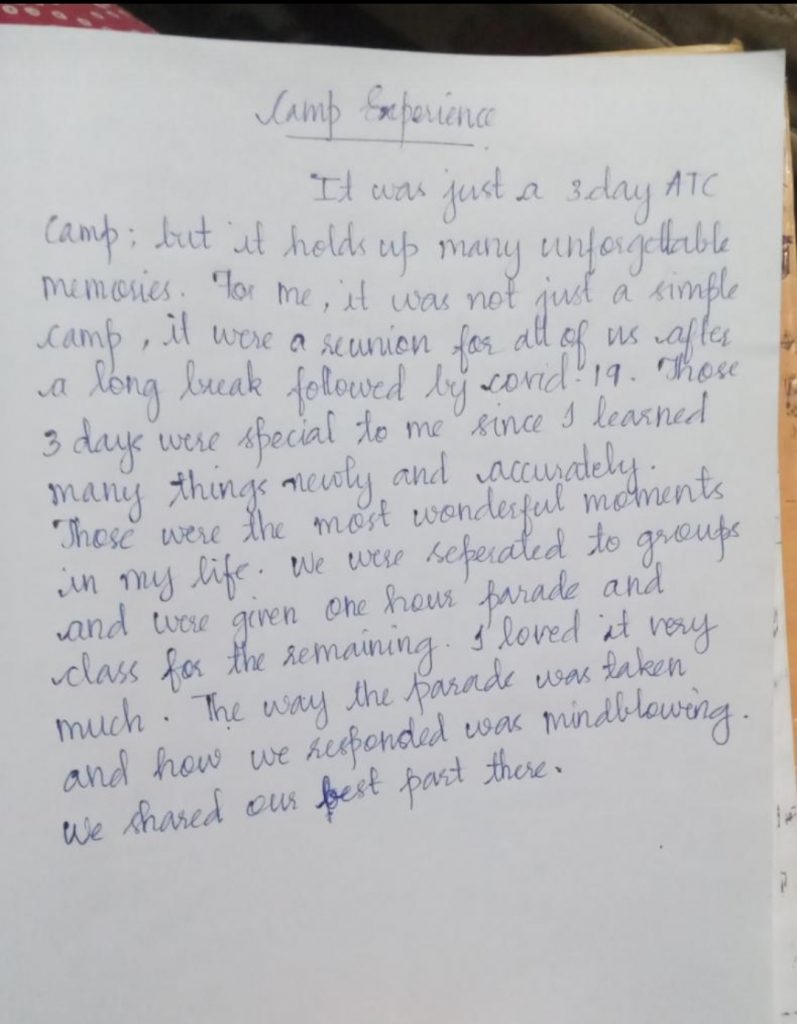 Camp Experience
It was just a 3 day ATC
Camp; but it holds up many unforgettable
memories. For me, it was not just a simple
camp, it were a reunion for all of us after
a long break followed by covid-19. Those
3 days were special to me since I learned
many things newly and accurately.
Those were the most wonderful moments
in my life. We were seperated to groups
and were given one hour parade and
class for the remaining. I loved it very
much. The way the parade was taken
and how we responded was mindblowing.
We shared our best part there.